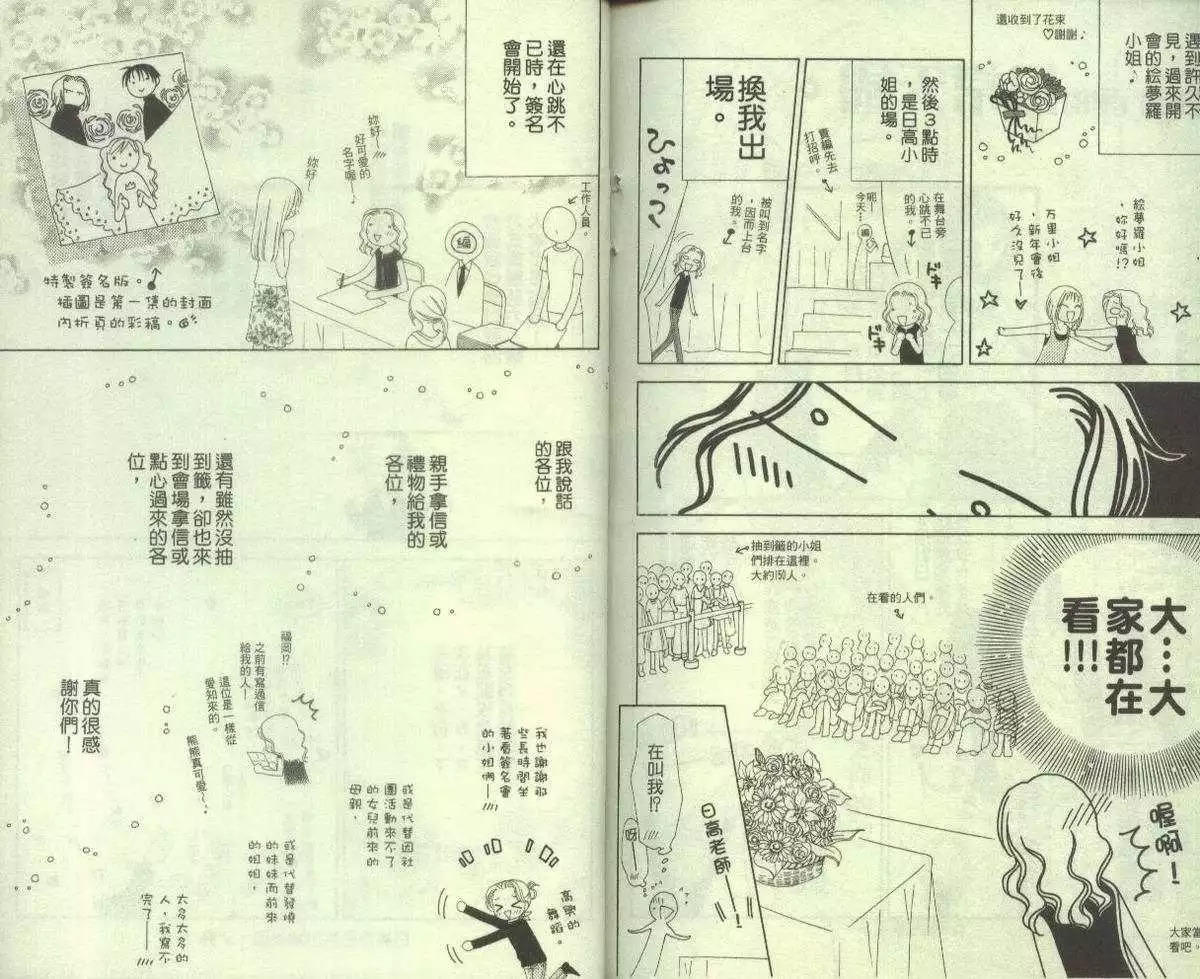 遇到許久不
見，過來開
會的絵夢羅
小姐♪
還收到了花束
♡謝謝♪
絵夢羅小姐
，妳好嗎!?
万里小姐
，新年會後
好久沒見了──♥
然後3點時
，是日高小
姐的場。
責編先去
打招呼。
呃─
今天…
編
在舞台旁
心跳不已
的我。
ドキ
ドキ
換我出
場。
ひょっっっ
被叫到名字
，因而上台
的我。
抽到籤的小姐
們排在這裡。
大約150人。
在看的人們。
大…大
家都在
看!!!
喔啊！
大家當
看吧。
日高老師──！
在叫我!?
呀
還在心跳不
已時，簽名
會開始了。
工作人員。
編
妳好！
好可愛的
名字喔──
妳好～
特製簽名版。
插圖是第一集的封面
內折頁的彩稿。
跟我說話
的各位，
親手拿信或
禮物給我的
各位，
還有雖然沒抽
到籤，卻也來
到會場拿信或
點心過來的各
位，
福岡!?
之前有寫過信
給我的人─
這位是一樣從
愛知來的。
熊熊真可愛～。
真的很感
謝你們！
我也謝謝那
些長時間坐
著看簽名會
的小姐們──
或是代替因社
團活動來不了
的女兒前來的
母親，
或是代替發燒
的妹妹而前來
的姐姐，
太多太多的
人，我寫不
完了──
高興的
舞蹈。